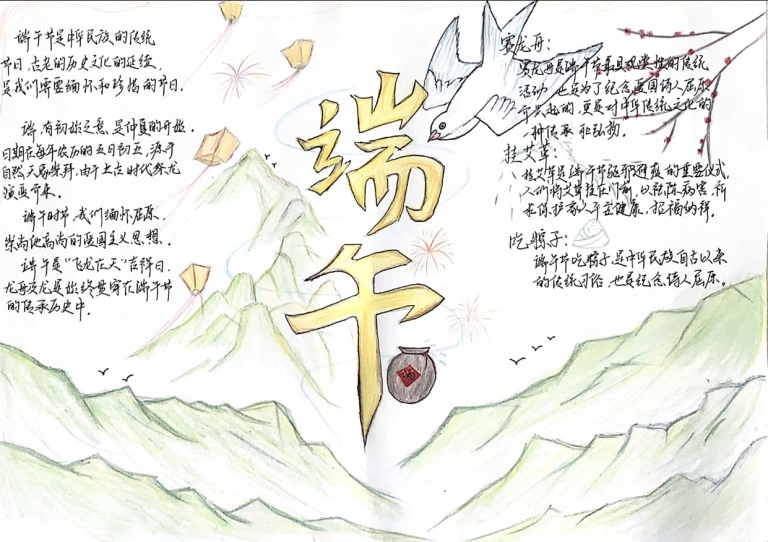 端午节是中华民族的传统
节日,古老的历史文化的延续,
是我们需要缅怀和珍惜的节日.
端,有初始之意,是仲夏的开始.
日期在每年农历的五月初五,源于
自然天象崇拜,由于上古时代祭龙
演变而来.
端午时节,我们缅怀屈原,
崇尚他高尚的爱国主义思想.
端午是"飞龙在天"吉祥日,
龙舟及龙是始终贯穿在端午节
的传承历史中.
端午
酒
赛龙舟:
赛龙舟是端午节最具观赏性的传统
活动,也是为了纪念爱国诗人屈原
而兴起的,更是对中华传统文化的
一种传承和弘扬.
挂艾草:
挂艾草是端午节驱邪避疫的重要仪式,
人们将艾草挂在门前,以祛除病害,祈
求保护家人平安健康,招福纳祥.
吃粽子:
端午节吃粽子是中华民族自古以来
的传统习俗,也是纪念诗人屈原.